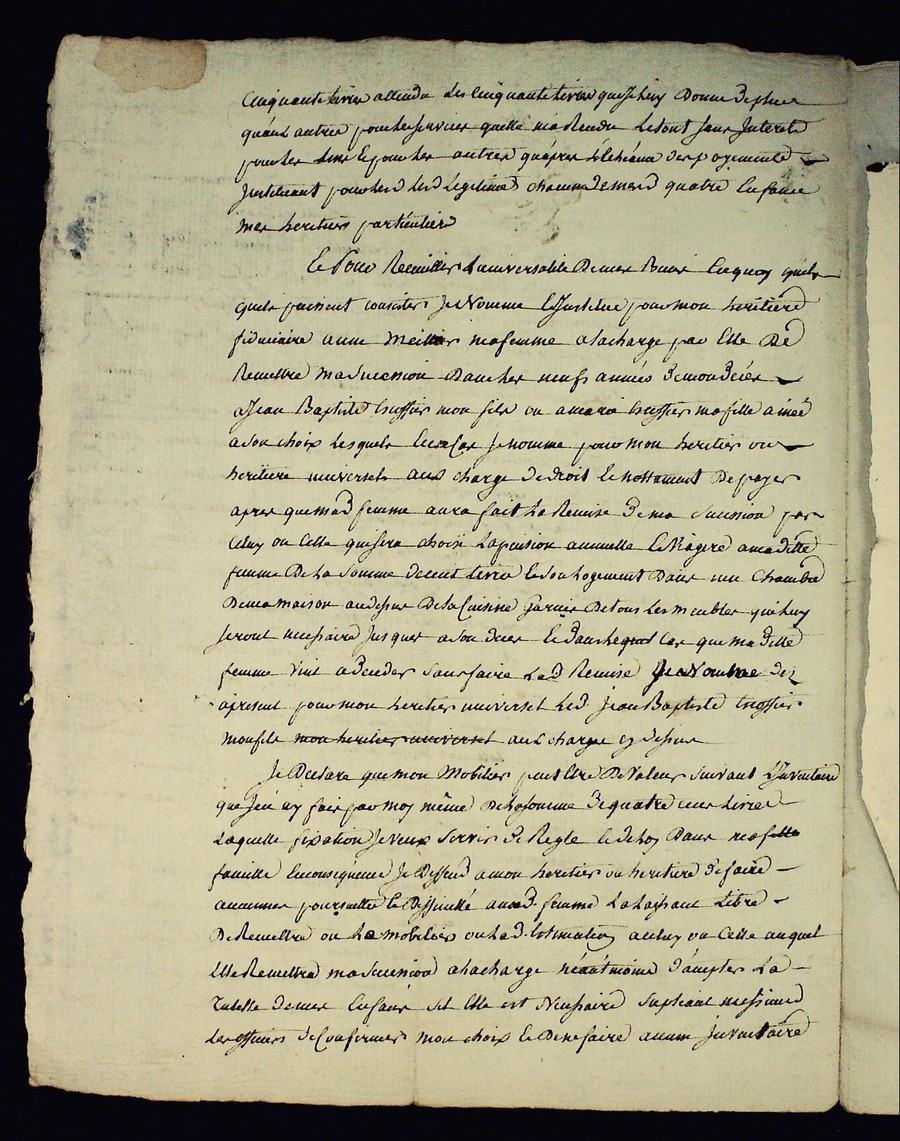 Cinquante livres attendu Les Cinquante livres que Je luy Donne De plus
qu'aux autres pour les services quelle ma Rendu Le tout sans Interets
pour les uns Et pour les autres qu'apres L'Echeance des payements
Instituant pour les d. Légitimes chacun de mesd quatre Enfans
mes heritiers particuliers
Et Pour Recuillir L'universalité De mes Biens En quoy quils
quils puissent consister Je Nomme Et Institue pour mon heritiere
fiduciaire anne ma femme a la charge par Elle De
Remettre ma succession Dans les neufs années De mon Decès
a Jean Baptiste mon fils ou a maria ma fille ainée
a son choix Lesquels En ce Cas Je nomme pour mon heritier ou
heritiere universels aux charge De droit Et nottament De payer
apres que mad femme aura fait La Remise De ma succession par
Celuy ou Celle qui sera choisi La pension annuelle Et Viagere a madite
femme De La somme de cent livres Et Son Logement Dans une Chambre
De ma maison au dessus De la Cuisine Garnie De tous Les meubles qui Luy
seront necessaire Jusques a son deces Et dans Lequel Cas que ma dite
femme vint a deceder sans faire La d Remise Je Nomme Des
apresent pour mon heritier universel Led Jean Baptiste
mon fils mon heritier universel aux charge cy dessus
Je Declare que mon Mobilier peut Etre De Valeur suivant L'Inventaire
que J'en ay fait par moy même De La somme De quatre cens livres
Laquelle fixation Je veux servir De Regle Et de Loy Dans ma fille
famille En consequence Je Deffend a mon heritier ou heritiere De faire
aucunnes poursuittes Et Difficulté a mad. femme La Laissant Libre
De Remettre ou Le mobilier ou La d. Estimation a celuy ou Celle auquel
Elle Remettra ma succession a la charge néantmoins D'accepter La
Tutelle De mes Enfans sit Elle est Necessaire supliant messieurs
Les officiers De Confirmer mon choix Et De ne faire aucun Inventaire